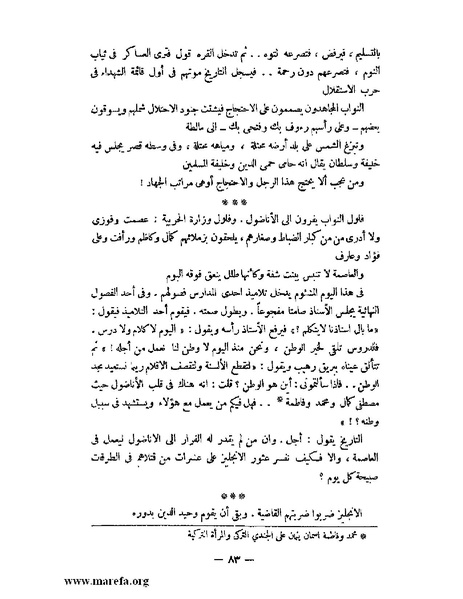 بالتسليم ، فيرفض ، فتصرعه لتوه . . ثم تدخل القره قول فترى العساكر فى ثياب
النوم ، فتصرعهم دون رحمة . . فيسجل التاريخ موتهم فى أول قائمة الشهداء فى
حرب الاستقلال
النواب المجاهدون يصممون على الاحتجاج فيشتت جنود الاحتلال شملهم ويسوقون
بعضهم ــ وعلى رأسهم رءوف بك وفتحى بك ــ الى مالطة
وتبزغ الشمس على بلد أرضه محتلة ، ومياهه محتلة ، وفى وسطه قصر يجلس فيه
خليفة وسلطان يقال انه حامى حمى الدين وخليفة المسلمين
ومن عجب ألا يحتج هذا الرجل والاحتجاج أوهى مراتب الجهاد !
* * *
فلول النواب يفرون الى الأناضول . وفلول وزارة الحربية : عصمت وفوزى
ولا أدرى من من كبار الضباط وصغارهم ، يلحقون بزملائهم كمال وكاظم ورأفت وعلى
فؤاد وعارف
والعاصمة لا تنبس ببنت شفة وكأنها طلل ينعق فوقه البوم
فى هذا اليوم المشئوم يدخل تلاميذ احدى المدارس فصولهم . وفى أحد الفصول
النهائية يجلس الأستاذ صامتا مفجوعاً . ويطول صمته . فيقوم أحد التلاميذ فيقول :
« ما بال استاذنا لا يتكلم ؟ » فيرفع الأستاذ رأسه ويقول : « اليوم لا كلام ولا درس .
فالدروس تلقى لخير الوطن ، ونحن منذ اليوم لا وطن لنا نعمل من أجله ! » ثم
تتألق عيناه ببريق رهيب ويقول : « لتقطع الألسنة ولتقصف الاقلام ريثما نستعيد مجد
الوطن . . فاذا سألتمونى : أين هو الوطن ؟ قلت : انه هناك فى قلب الأناضول حيث
مصطفى كمال ومحمد وفاطمة * . . فهل فيكم من يعمل مع هؤلاء ويستشهد فى سبيل
وطنه ؟ ! »
التاريخ يقول : أجل . وان من لم يقدر له الفرار الى الاناضول ليعمل فى
العاصمة ، والا فكيف نفسر عثور الانجليز على عشرات من قتلاهم فى الطرقات
صبيحة كل يوم ؟
* * *
الانجليز ضربوا ضربتهم القاضية . وبقى أن يقوم وحيد الدين بدوره
* محمد وفاطمة اسمان يطلقان على الجندي التركى والمرأة التركية
— ٨٣ —
www.marefa.org